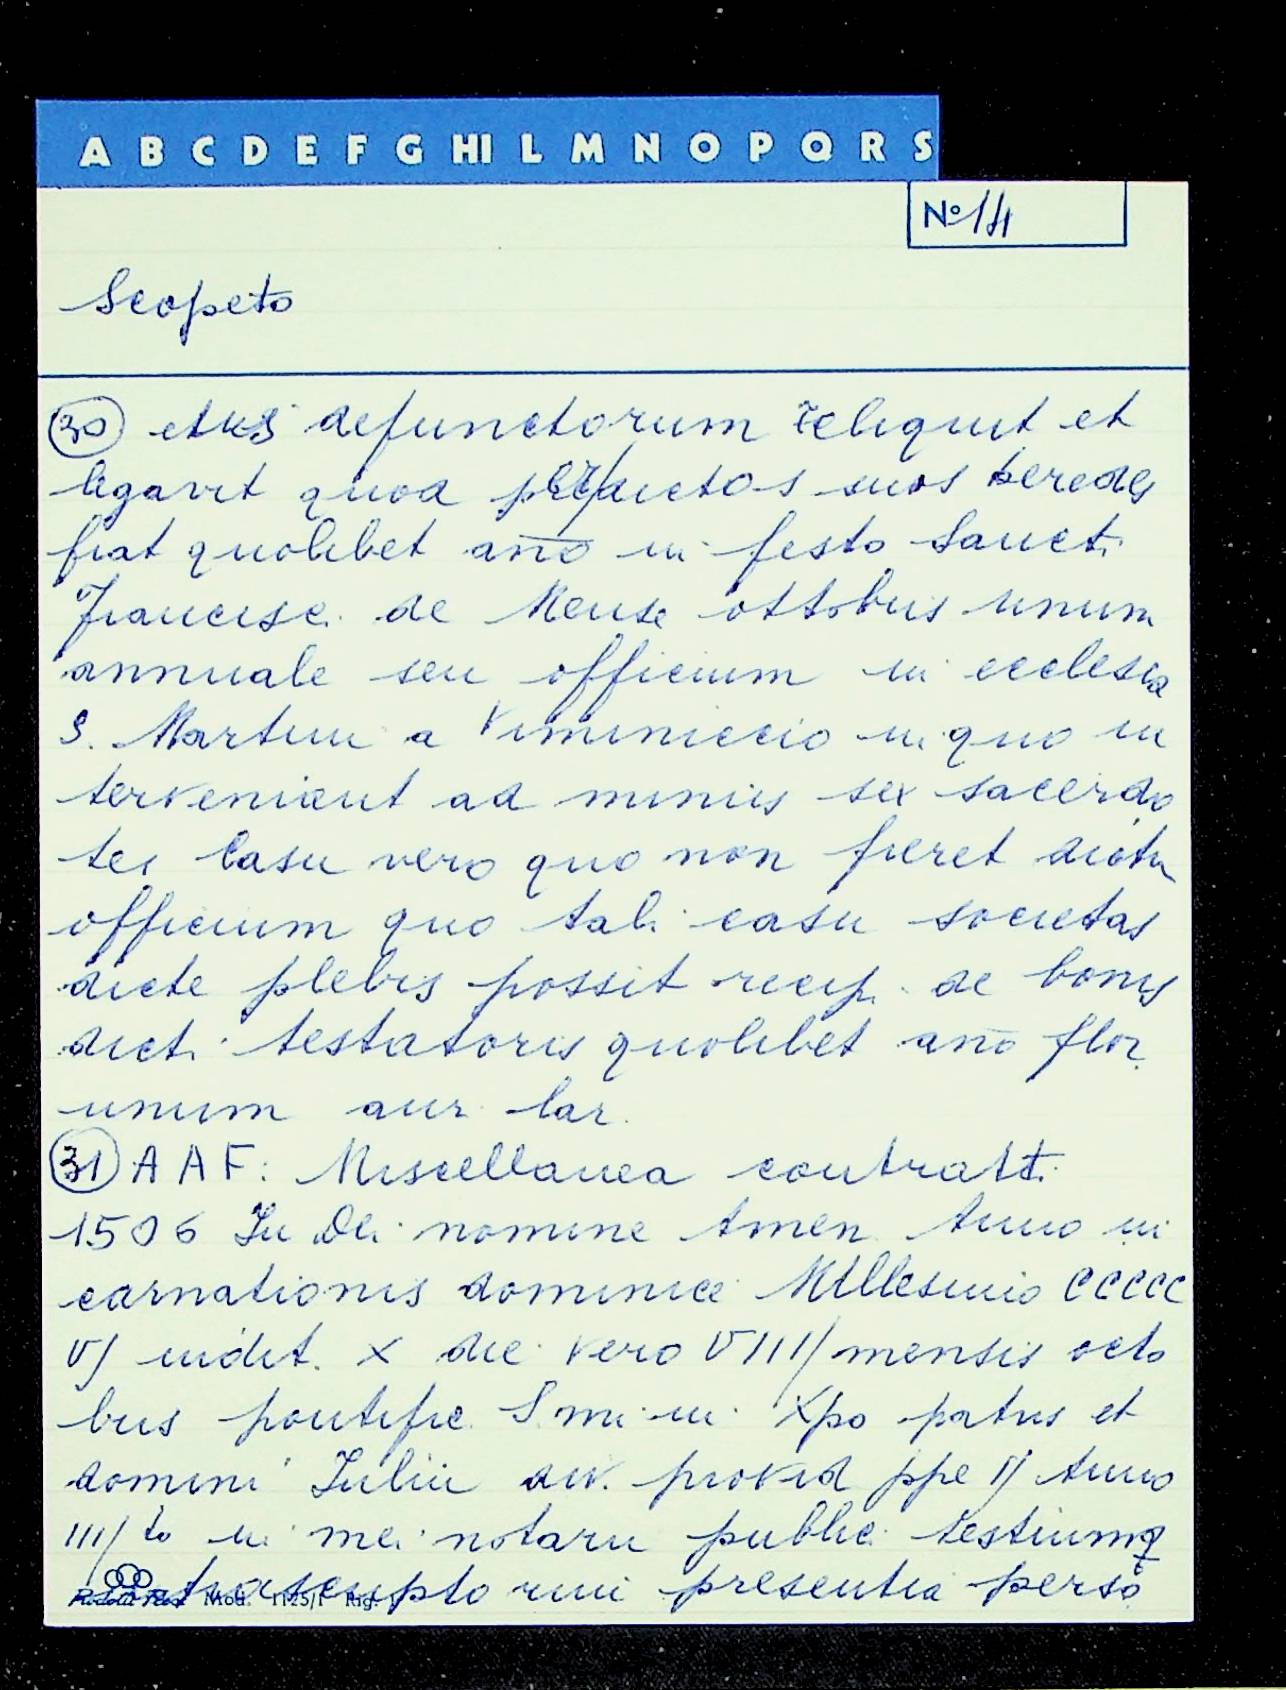 A B C D E F G HI L M N O P Q R S
Nº 14
Scopeto
30 etus defunctorum reliquit et
legavit quod predictos suos heredes
fiat quolibet año in festo Sancti
Francisci de Mense ottobris unum
annuale seu officium in ecclesia
S. Martini a Viminiccio in quo in
tervenient ad minus sex sacerdo
tes Casu vero quo non fieret dictu
officium quo tali casu societas
dicte plebis possit recip. de bonis
dicti testatoris quolibet año flor.
unum aur. lar.
31 A A F: Miscellanea contratti
1506 In Dei nomine Amen Anno in
carnationis dominice Millesimo CCCCC
VJ indit. X die vero VIII mensis octo
bris pontific. S mi in Xpo patris et
domini Iulii div. provid ppe IJ Anno
III to in mei notarii public testiumq
infrascriptorum presentia perso
Mod. 1125/1 Rig.